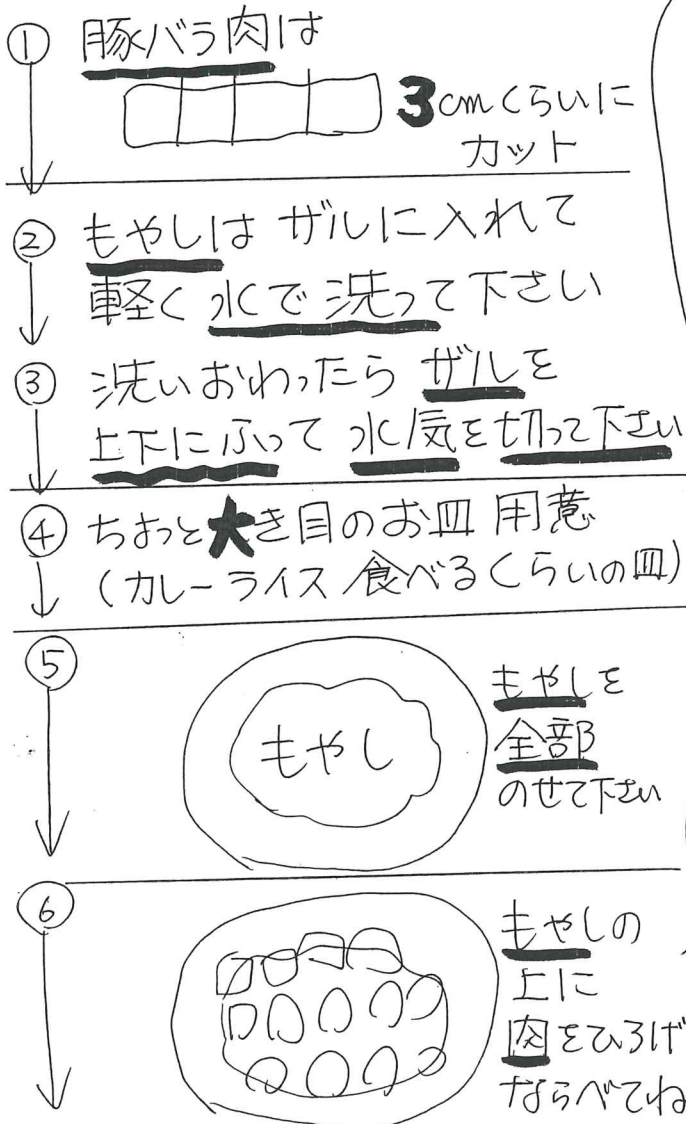 ① 豚バラ肉は
3cmくらいに
カット
② もやしは ザルに入れて
軽く水で洗って下さい
③ 洗いおわったら ザルを
上下にふって 水気を切って下さい
④ ちょっと大き目のお皿 用意
(カレーライス食べるくらいの皿)
⑤
もやし
もやしを
全部
のせて下さい
⑥
もやしの
上に
肉をひろげ
ならべてね